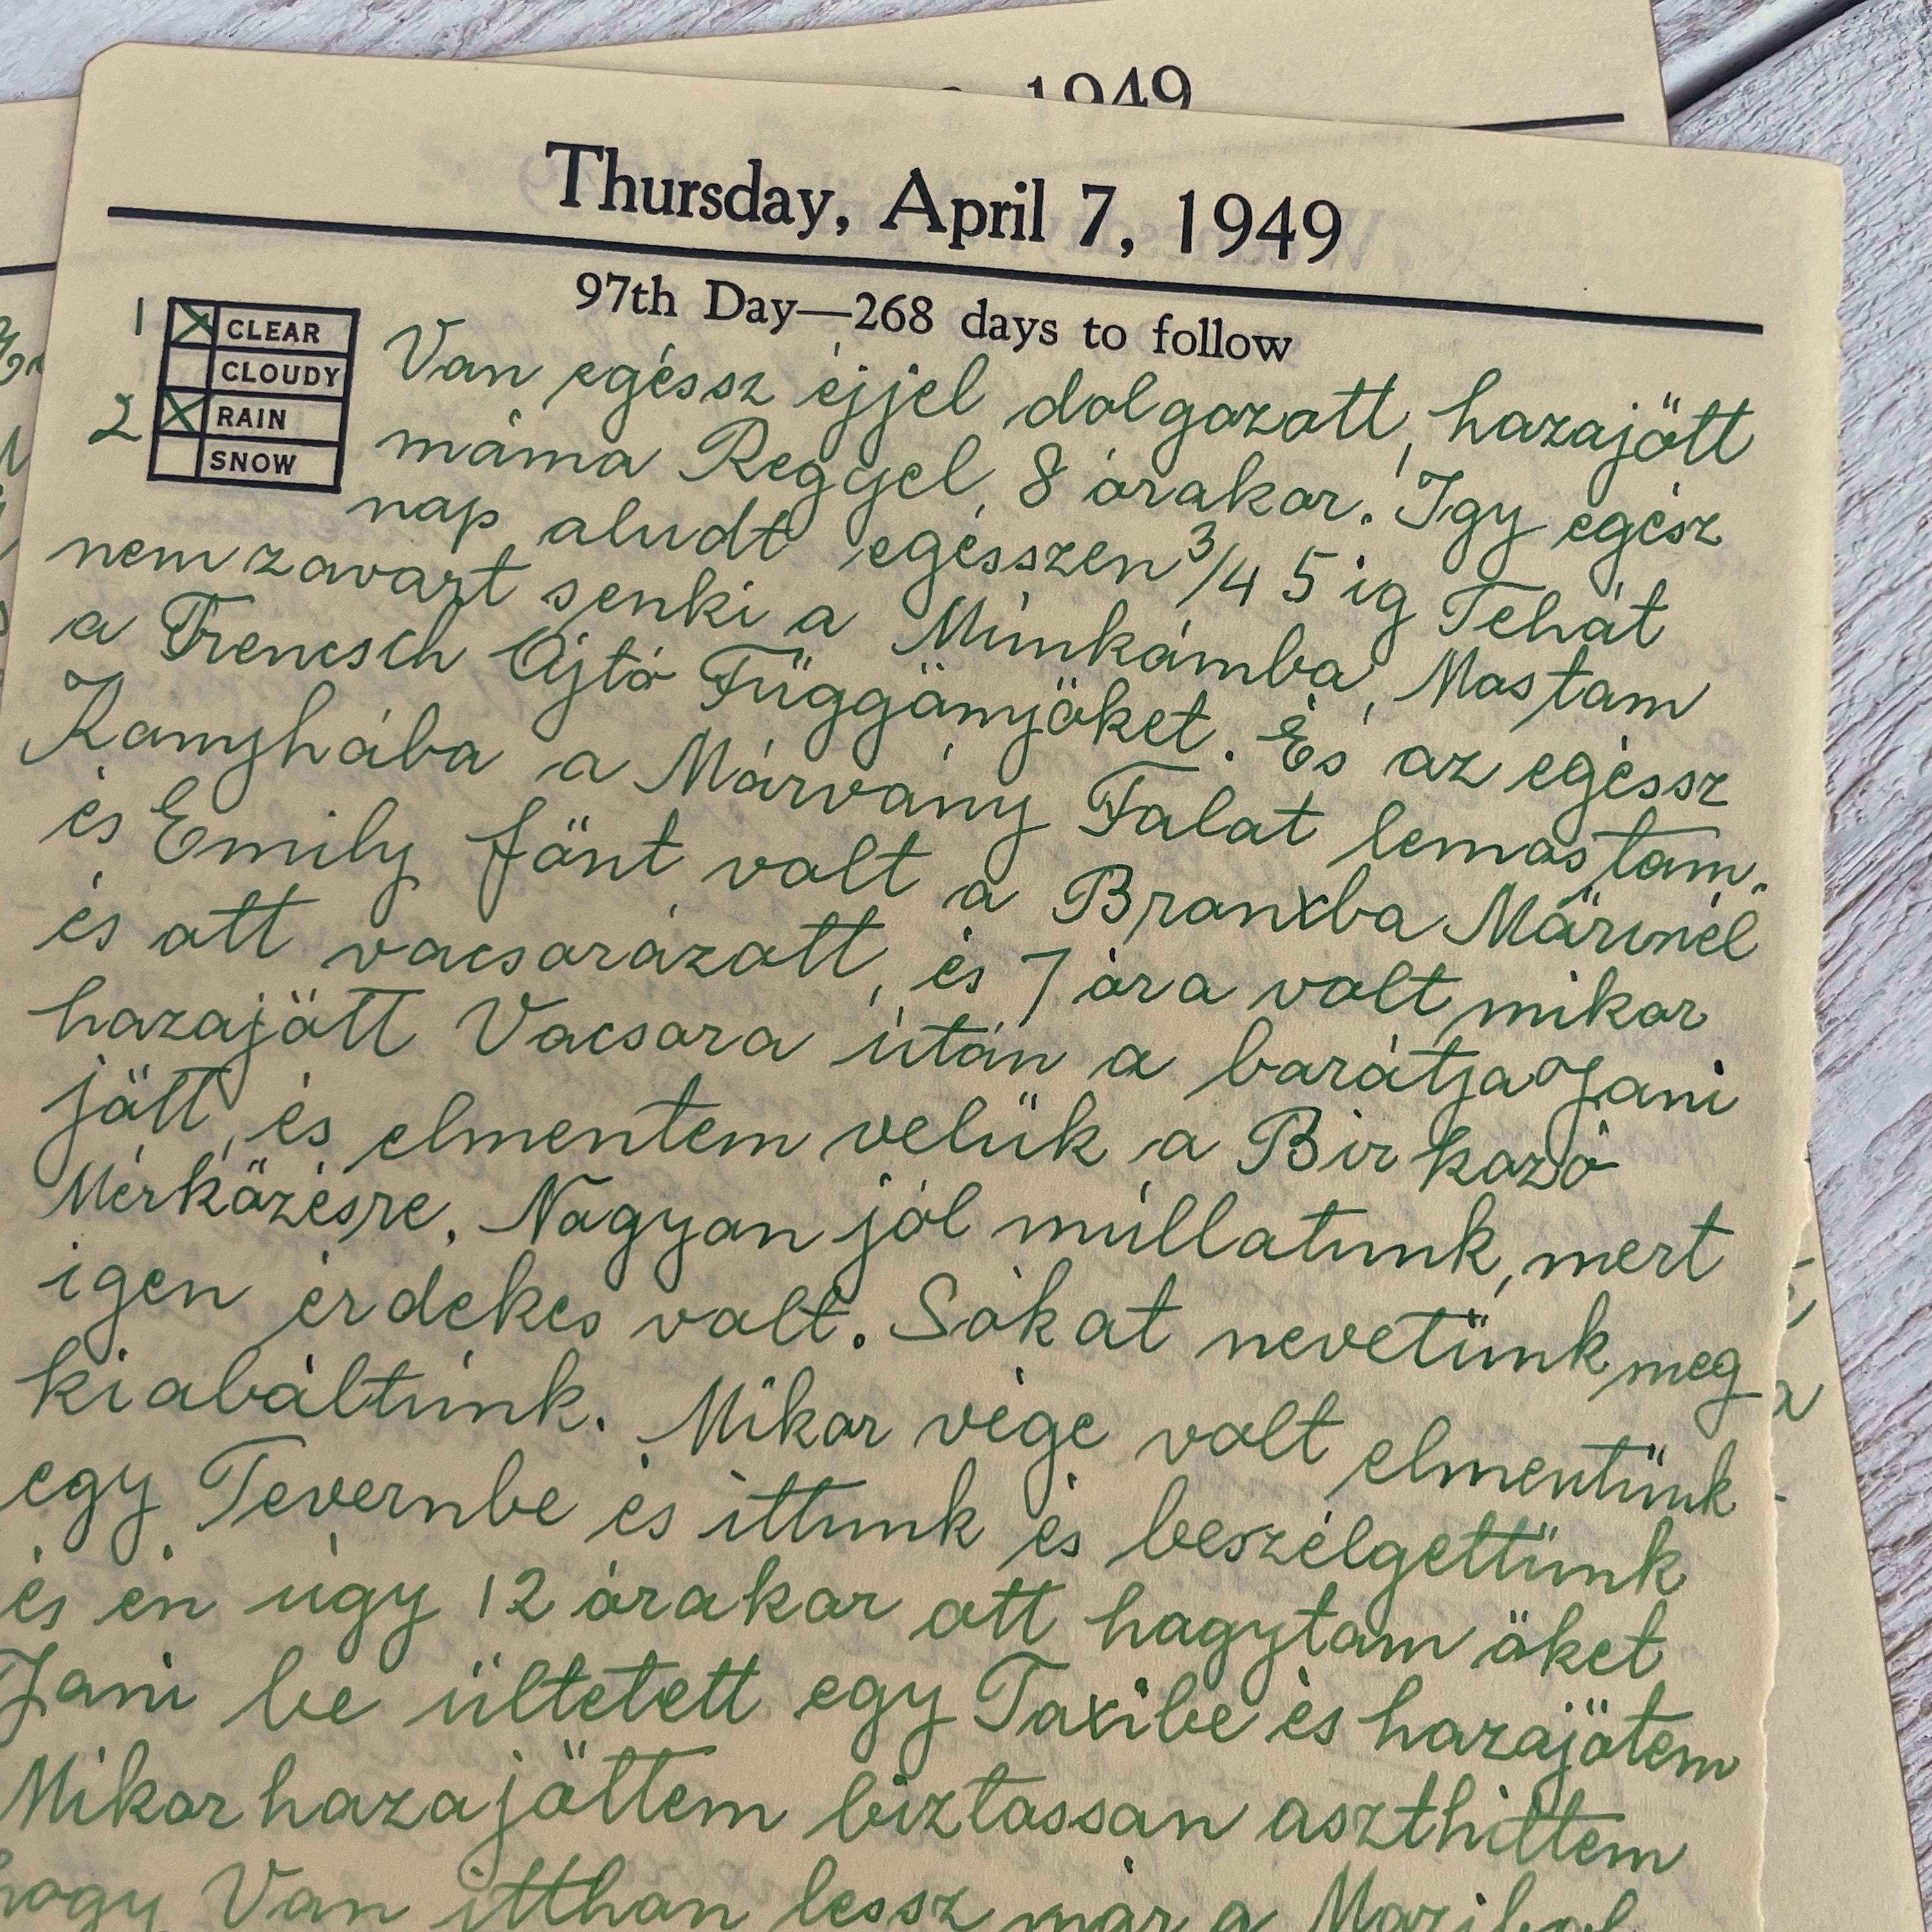 1949
Thursday, April 7, 1949
97th Day—268 days to follow
1 CLEAR
CLOUDY
2 RAIN
SNOW
Van egéssz éjjel dolgozott, hazajött
máma Reggel, 8 órakor. Igy egész
nap aludt egésszen 3/4 5 ig Tehát
nem zavart senki a Munkámba, Mostam
a Frencsch Ajtó Függönyjöket. És az egéssz
Kanyhába a Márvány Falat lemostam.
és Emily fönt volt a Bronxba Märinél
és ott vacsorázott, és 7 óra volt mikor
hazajött Vacsora után a barátja Jani
jött, és elmentem velük a Bir kozó
Mérközésre. Nagyon jól múllatunk, mert
igen érdekes volt. Sokat nevetünk meg
kiabáltunk. Mikor vége volt elmentünk
egy Tevernbe és ittunk és beszélgettünk
és én úgy 12 órakor ott hagytam öket
Jani be ültetett egy Taxibe és hazajötem
Mikor hazajöttem biztossan aszthittem
hogy Van itthon lessz már a